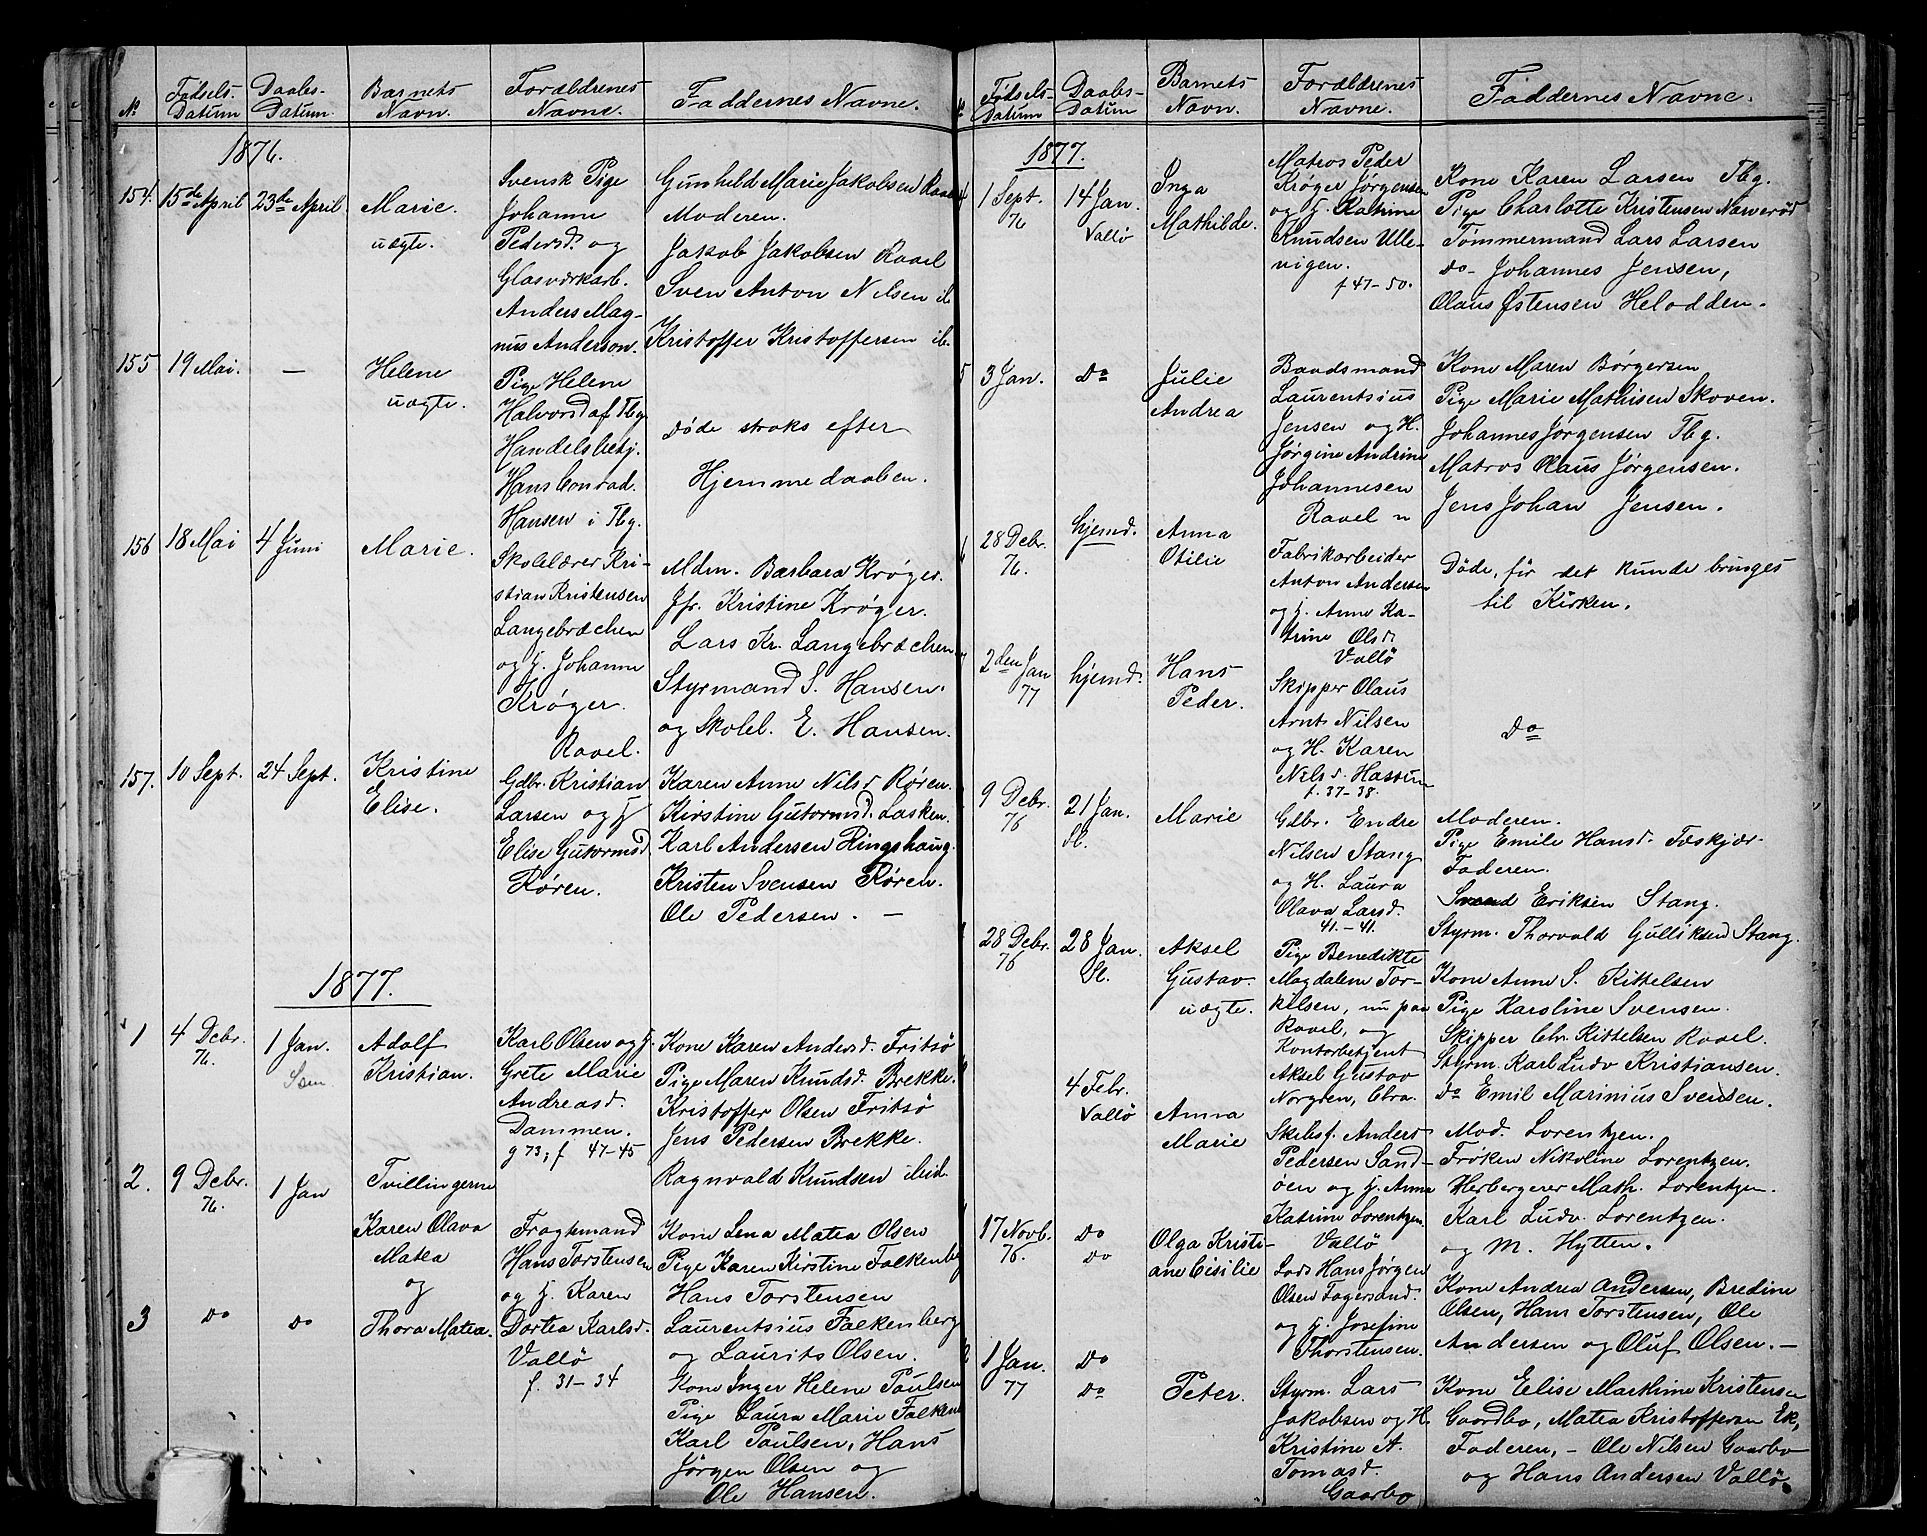 No Fødsels-Datum Daabs-Datum. Barnets Navn. Forældrenes Navne. Faddernes Navne.
1876.
154. 15de April 23de April Marie. uægte.
Svensk Pige
Johanne
Pedersd. og
Glasværkarb.
Anders Mag-
nus Anderson.
Gunhild Marie Jakobsen
Moderen.
Jakob Jakobsen Ravel
Sven Anton Nilsen ib.
Kristoffer Kristoffersen ib.
155 19 Mai. — Helene uægte.
Pige Helene
Halvorsd af Tbg.
Handelsbetj.
Hans Conrad.
Hansen i Tbg.
Døde straks efter
Hjemmedaaben.
156 18 Mai 4 Juni Marie.
Skolelærer Kri-
stian Kristensen
Langebrækken
og H. Johanne
Krøger.
Ravel.
Mdm. Barbara Krøger.
Jfr. Kristine Krøger.
Lars Kr. Langebrækken
Styrmand S. Hansen.
og Skolel. E. Hansen.
157. 10 Sept. 24 Sept. Kristine Elise.
Gdbr. Kristian
Larsen og H
Elise Gutormsd
Røren.
Karen Anne Nilsd Røren.
Kirstine Gutormsd. Lasken.
Karl Andersen Ringshaug.
Kristen Svensen Røren.
Ole Pedersen. —
1877.
1 4 Debr. 76. 1 Jan. Sem Adolf Kristian.
Karl Olsen og H.
Grete Marie
Andreasd.
Dammen.
g 73; f 47-45
Kone Karen Andersd. Fritsø
Pige Maren Knudsd. Brekke.
Kristoffer Olsen Fritsø
Jens Pedersen Brekke.
Ragnvald Knudsen ibid.
2. 9 Debr. 76. 1 Jan Tvillingerne
Karen Olava
Matea
og
3 do do Thora Matea.
Fragtemand
Hans Torstensen
og H. Karen
Dortea Karlsd.
Vallö
f. 31-34
Kone Lena Matea Olsen
Pige Karen Kirstine Falkenberg
Hans Torstensen
Laurentsius Falkenberg
og Laurits Olsen.
Kone Inger Helene Paulsen
Pige Laura Marie Falkenb
Karl Paulsen, Hans
Jørgen Olsen og
Ole Hansen.
No Fødsels-Datum Daabs-Datum Barnets Navn. Forældrenes Navne. Faddernes Navne.
1877.
4 1 Sept. 76 14 Jan. Vallö Inga Mathilde.
Matros Peder
Krøger Jørgensen
og H. Katrine
Knudsen Ulle-
vigen.
f 47-50.
Kone Karen Larsen Tbg.
Pige Charlotte Kristensen Narverød
Tømmermand Lars Larsen
do- Johannes Jensen,
Olaus Østensen Helodden.
5 3 Jan. do Julie Andrea
Baadsmand
Laurentsius
Jensen og H.
Jørgine Andrine
Johannesen
Ravel
Kone Maren Børgersen
Pige Marie Mathisen Skoven.
Johannes Jørgensen Tbg.
Matros Olaus Jørgensen.
Jens Johan Jensen.
6 28 Debr. 76. hjemd. Anna Otilie
Fabrikarbeider
Anton Andersen
og H. Anne Ka-
trine Olsd.
Vallö
Døde, før det kunde bringes
til Kirken.
7 2den Jan 77 hjemd. Hans Peder.
Skipper Olaus
Arnt Nilsen
og H. Karen
Nilsd. Hassum
f. 37-38.
do
9 Debr. 76 21 Jan. Sl. Marie
Gdbr. Endre
Nilsen Stang
og H. Laura
Olava Larsd.
41.-41.
Moderen.
Pige Emile Hansd. Foskjær.
Faderen.
Svend Eriksen Stang.
Styrm. Thorvald Gulliksen Stang.
28 Debr. 76 28 Jan. Sl. Aksel Gustav. uægte.
Pige Benedikte
Magdalene Tor-
kilsen, nu paa
Ravel, og
Kontorbetjent
Aksel Gustav
Norgren, Chra.
Kone Anne S. Kittelsen
Pige Karoline Svensen.
Skipper Chr. Kittelsen Ravel.
Styrm. Karl Ludv Kristiansen.
do Emil Marinius Svensen.
4 Febr. Vallö Anna Marie
Skibsf. Anders
Pedersen Sand-
øen og H. Anna
Katrine Lorentzen.
Vallö
Mad. Lorentzen.
Frøken Nikoline Lorentzen.
Herbergerer Math. Lorentzen.
Karl Ludv. Lorentzen.
og M. Hytten.
17 Novb. 76. do do Olga Kristi-
ane Cisilie
Lods Hans Jørgen
Olsen Fagersand.
og H. Josefine
Thorstensen.
Kone Andrea Andersen, Bredine
Olsen, Hans Torstensen, Ole
Andersen og Oluf Olsen. —
1 Jan. 77 do do Peter.
Styrm. Lars
Jakobsen og H.
Kristine A.
Tomasd.
Gaarbo
Kone Elise Marthine Kristensen
Gaardbo, Matea Kristoffersen Ek,
Faderen, - Ole Nilsen Gaarbo
og Hans Andersen Vallö.